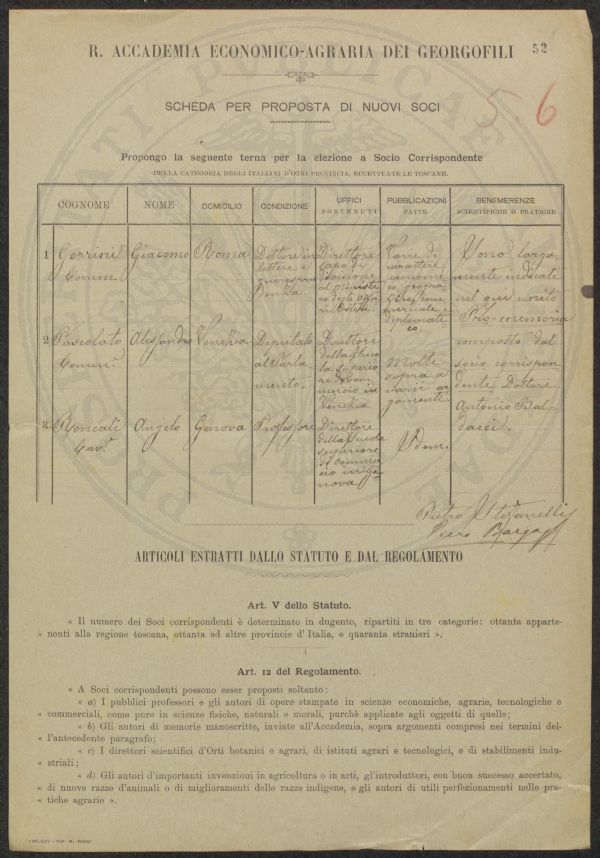 R. ACCADEMIA ECONOMICO-AGRARIA DEI GEORGOFILI
52
56
SCHEDA PER PROPOSTA DI NUOVI SOCI
Propongo la seguente terna per la elezione a Socio Corrispondente
DELLA CATEGORIA DEGLI ITALIANI D'OGNI PROVINCIA, ECCETTUATE LE TOSCANE.
COGNOME NOME DOMICILIO CONDIZIONE UFFICI SOSTENUTI PUBBLICAZIONI FATTE BENEMERENZE SCIENTIFICHE O PRATICHE
1 Gorrini Comm. Giacomo Roma Dottore in lettere e Direttore Capo di divisione al Ministero degli Affari Esteri Varie di carattere economico, geografico, commerciale e diplomatico
Sono largamente indicate nel qui unito Pro-memoria composto dal socio corrispondente Dottore Antonio Baldacci.
2 Pascolato Comm. Alessandro Venezia Deputato al Parlamento. Direttore della Scuola Superiore di Commercio in Venezia Molte sopra a varii argomenti
3 Roncali Cav. Angelo Genova Professore Direttore della Scuola superiore di commercio in Genova Idem.
Pietro Stefanelli
Piero
ARTICOLI ESTRATTI DALLO STATUTO E DAL REGOLAMENTO
Art. V dello Statuto.
« Il numero dei Soci corrispondenti è determinato in dugento, ripartiti in tre categorie: ottanta apparte-
« nenti alla regione toscana, ottanta ad altre provincie d'Italia, e quaranta stranieri ».
Art. 12 del Regolamento.
« A Soci corrispondenti possono esser proposti soltanto:
« a) I pubblici professori e gli autori di opere stampate in scienze economiche, agrarie, tecnologiche e
« commerciali, come pure in scienze fisiche, naturali e morali, purchè applicate agli oggetti di quelle;
« b) Gli autori di memorie manoscritte, inviate all'Accademia, sopra argomenti compresi nei termini del-
« l'antecedente paragrafo;
« c) I direttori scientifici d'Orti botanici e agrari, di istituti agrari e tecnologici, e di stabilimenti indu-
« striali;
« d) Gli autori d'importanti invenzioni in agricoltura o in arti, gl'introduttori, con buon successo accertato,
« di nuove razze d'animali o di miglioramenti delle razze indigene, e gli autori di utili perfezionamenti nelle pra-
« tiche agrarie ».